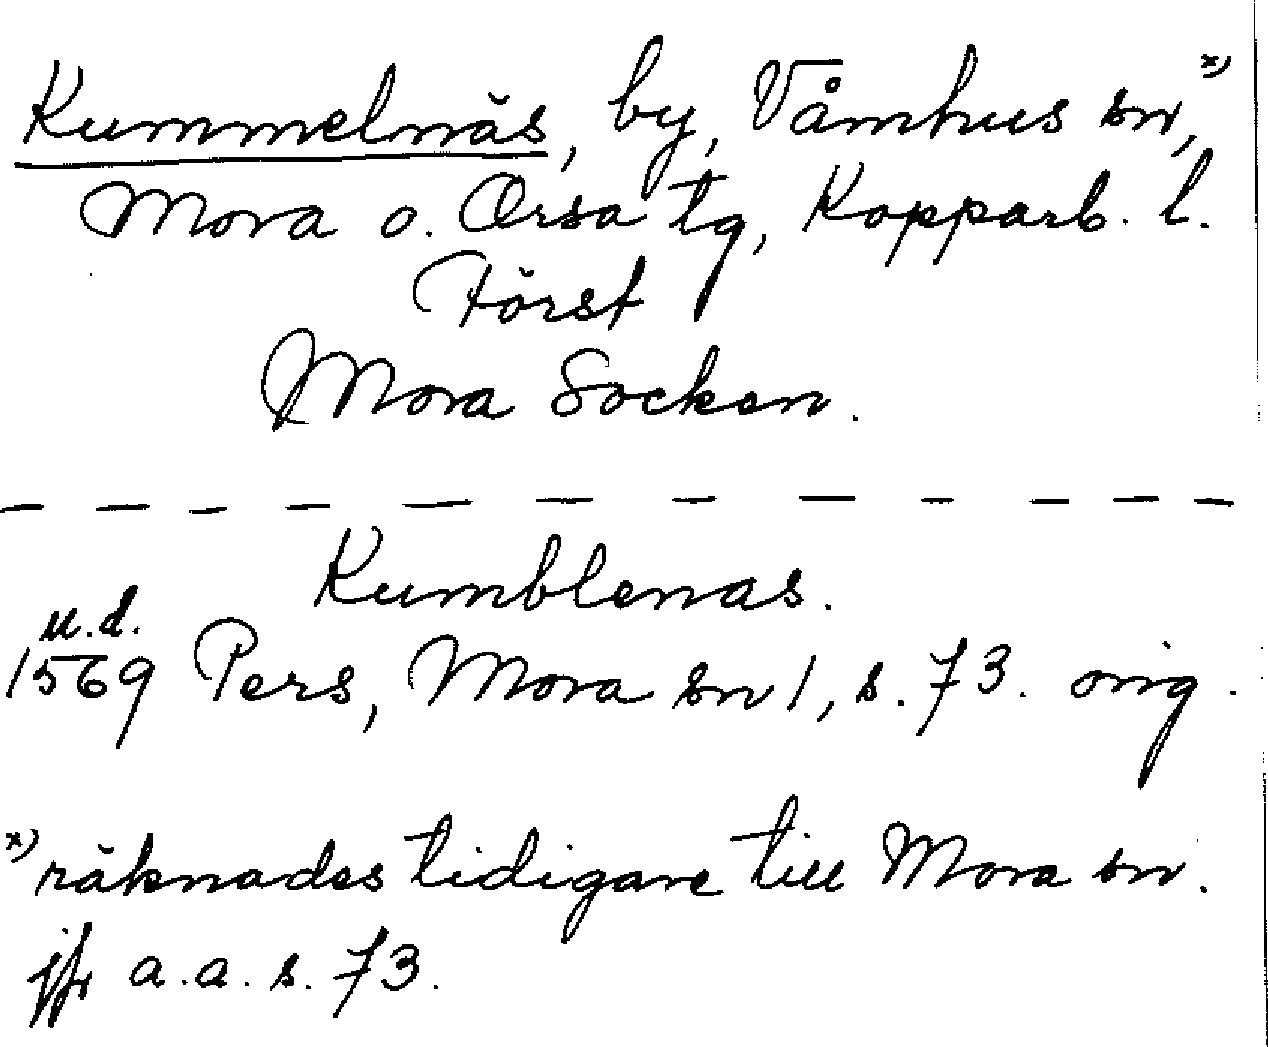 Kummelnäs, by, Våmhus sn, x)
Mora o. Orsa tg, Kopparb. l.
Först
Mora Socken.
Kumblenas.
u.d.
1569 Pers, Mora sn 1, s. 73. orig.
x) räknades tidigare till Mora sn.
jfr a.a. s. 73.